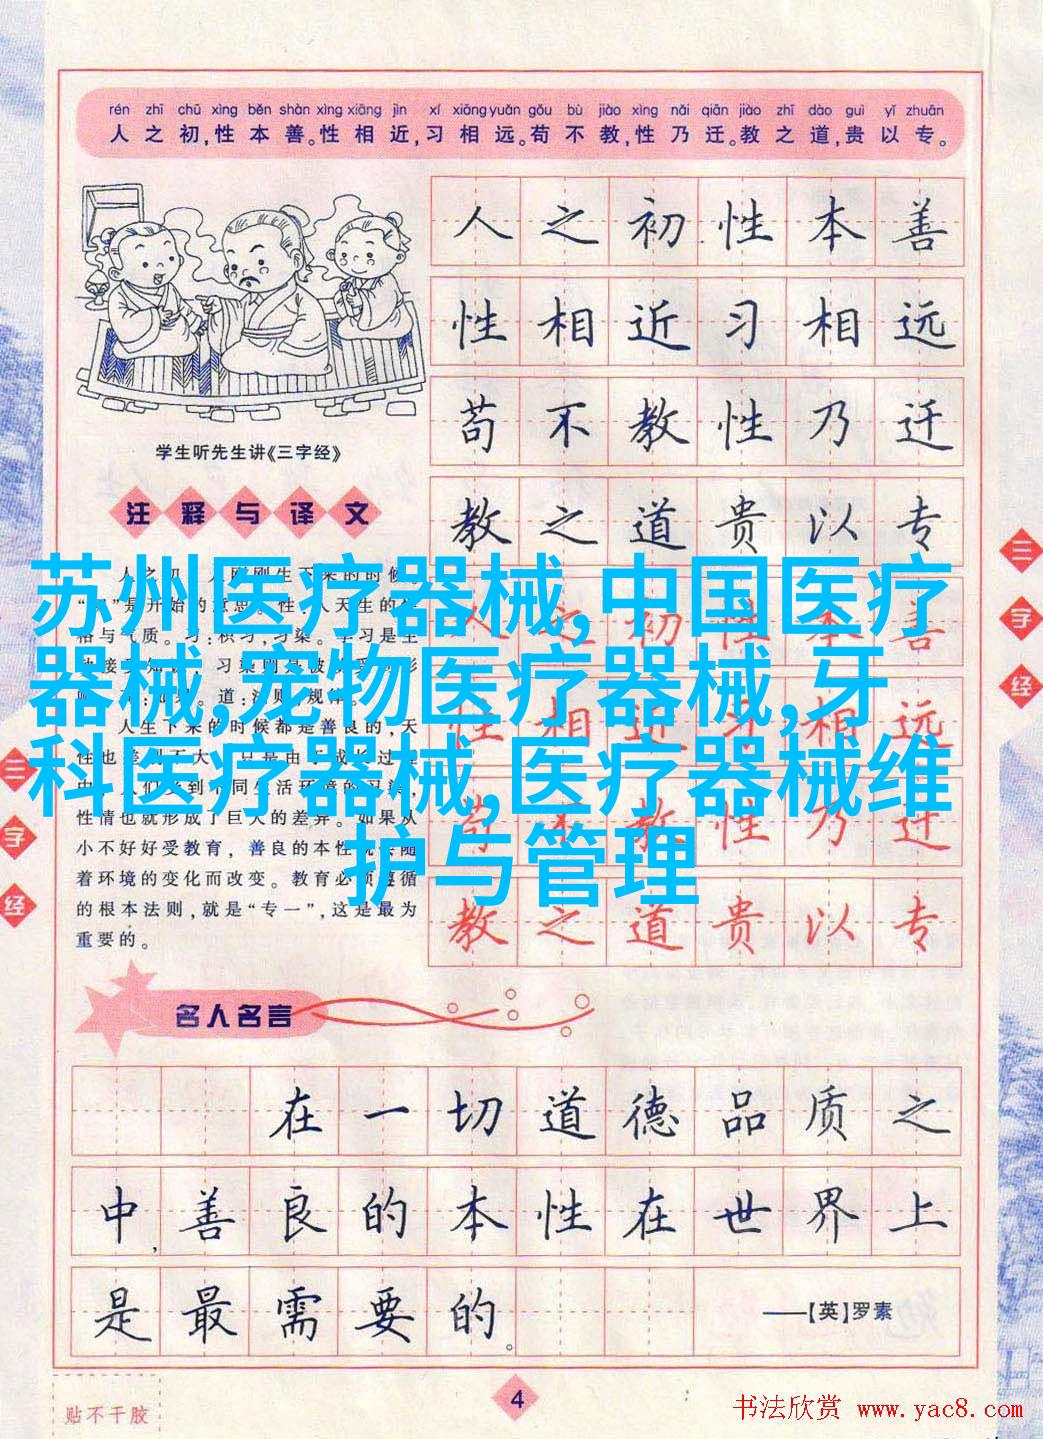 rén zhī chū xìng běn shàn xìng xiāng jìn xí xiāng yuǎn gǒu bù jiào xìng nǎi qiān jiào zhī dào guì yǐ zhuān
人之初,性本善。性相近,习相远。苟不教,性乃迁。教之道,贵以专。
人之初性本善
性相近习相远
苟不教性乃迁
教之道贵以专
学生听先生讲《三字经》
注释与译文
苏州医疗器械,中国医疗
器械,宠物医疗器械,牙
科医疗器械,医疗器械维
护与管理
人生下来的时候都是善良的,天
性情也就形成了巨大的差异。如果从
小不好好受教育,善良的本性就会随
着环境的变化而改变。教育必须遵循
的根本法则,就是“专一”,这是最为
重要的。
教之道贵以专
三字经
三字经
名人名言
在一切道德品质之
中,善良的本性在世界上
是最需要的。
——【英】罗素
4
贴不干胶
书法欣赏 www.yac8.com